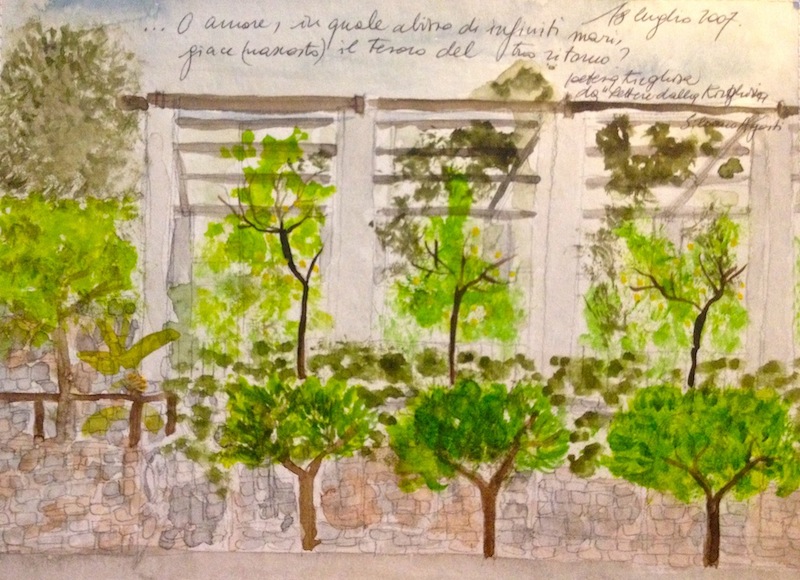 ... O amore, in quale abisso di infiniti mari,
giace (nascosto) il Tesoro del tuo ritorno?
18 luglio 2007.
poetessa Kirghisa
da "Lettere dalla Kirghisia
Silvano Agosti